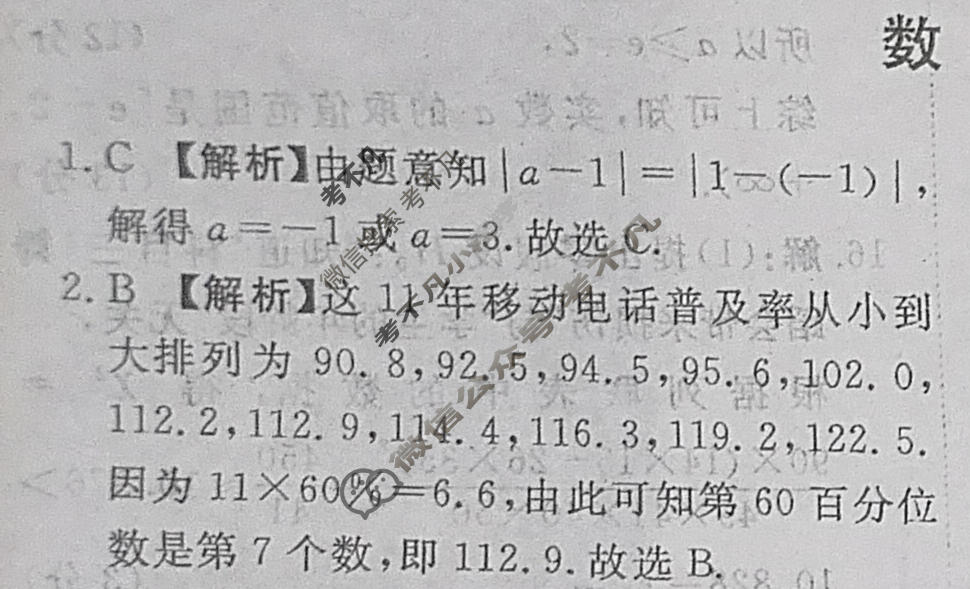 数
1. C 【解析】由题意知|a－1|＝|1－(－1)|，
解得 a＝－1 或 a＝3. 故选 C.
2. B 【解析】这 11 年移动电话普及率从小到
大排列为 90. 8，92. 5，94. 5，95. 6，102. 0，
112. 2，112. 9，114. 4，116. 3，119. 2，122. 5.
因为 11×60%＝6. 6，由此可知第 60 百分位
数是第 7 个数，即 112. 9. 故选 B.
微信搜索 考不凡
考不凡小程序
微信公众号 考不凡